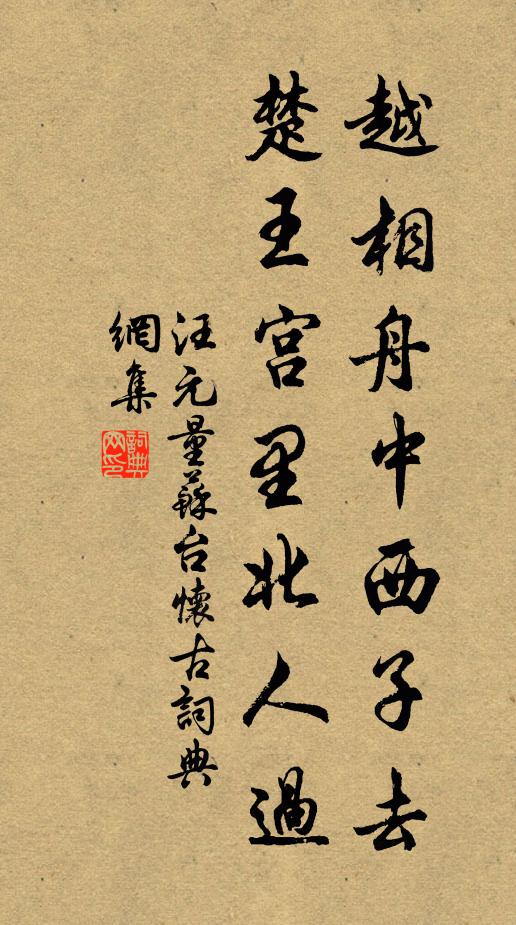 越相舟中西子去
楚王宫里北人過
汪元量蘇台懷古詞典
網集
詞典
网印